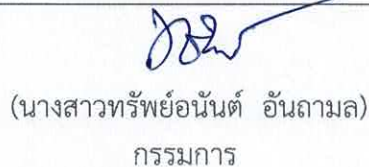 (นางสาวทรัพย์อนันต์ อันถามล)
กรรมการ